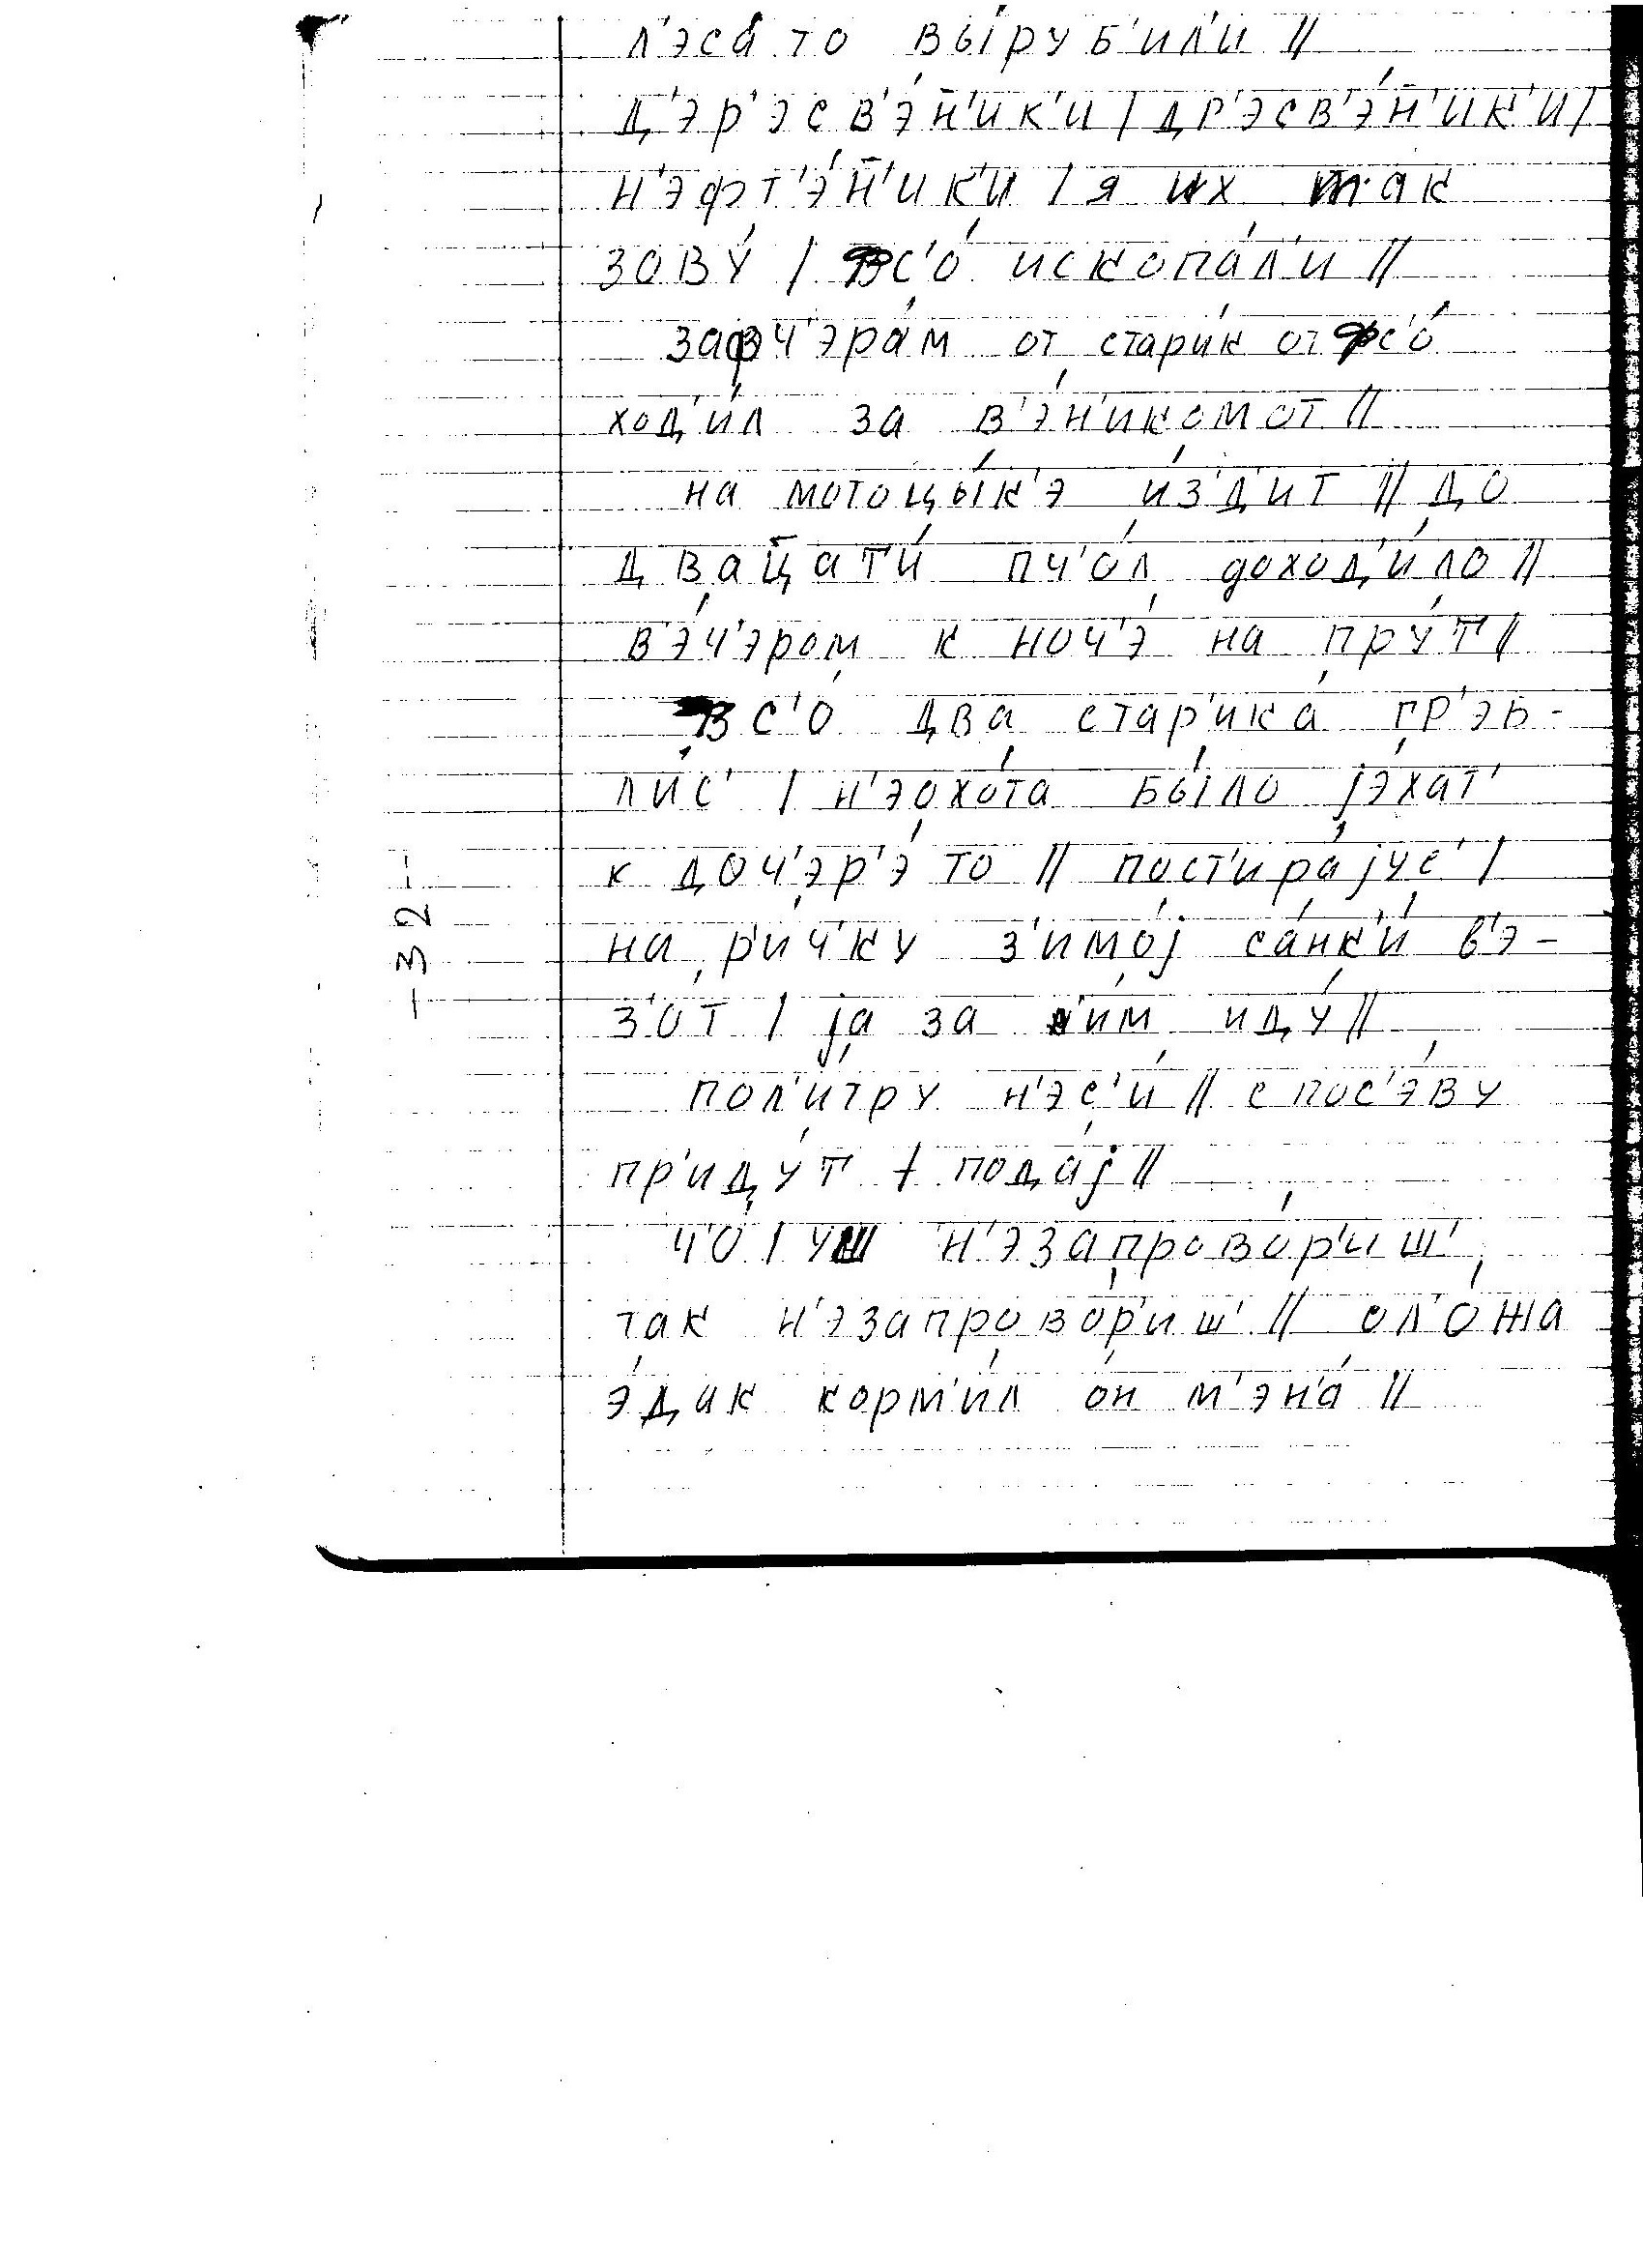 л'эса́ то вы́руб'ил'и //
д'эр'эсв'э́н̄'ик'и / др'эсв'э́н̄'ик'и /
н'эфт'э́н̄'ик'и / я их так
зову́ / вс'о́ ископа́л'и //
зафч'эра́м от стари́к от фс'о́
ход'и́л за в'э́н'икомот //
на мотоцы́к'э и́з'д'ит // до
двац̄ат'и́ пч'о́л доход'и́ло //
в'э́ч'эром к ноч'э́ на пру́т /
вс'о́ два стар'ика́ гр'эб-
ли́с' / н'эохо́та бы́ло jэ́хат'
к доч'эр'э́ то // пост'ира́jус' /
на р'и́ч'ку з'имо́j са́нк'и́ в'э-
з'о́т / jа за н'им иду́ //
пол'и́тру н'эс'и́ // с пос'э́ву
пр'иду́т / пода́j //
ч'о / уш н'эзапрово́р'иш'
так н'эзапрово́р'иш' // ол'о́жа
э́дик корм'и́л о́н м'эн'а́ //
-32-